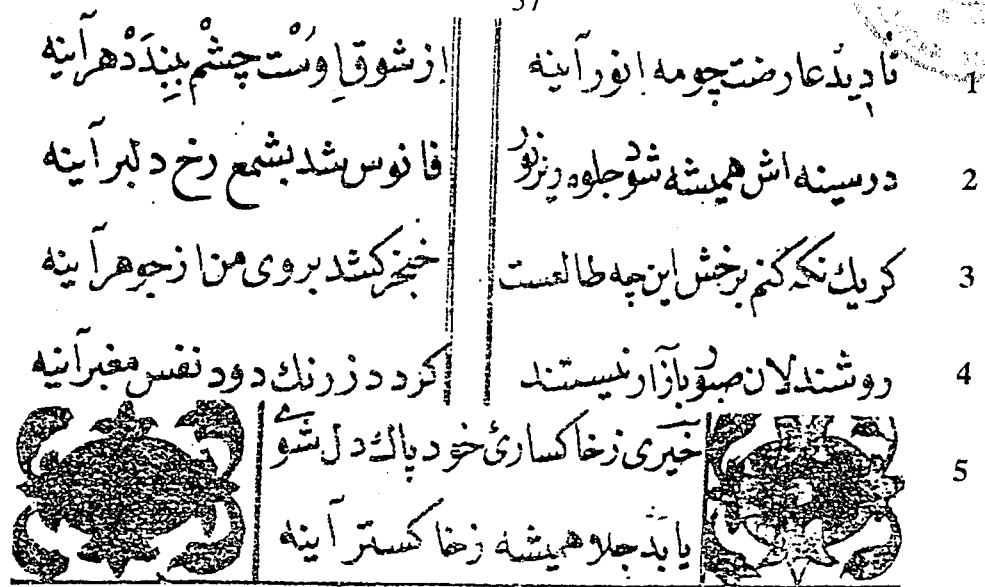 37
تا دیدُ عارضت چو مه انور آینه از شوقِ اوسْت چشْم ببِندَدْ هر آینه 1
در سینه اش همیشه شود جلوه ریز نور فانوس شد بشمع رخ دلبر آینه 2
کر یك نکه کنم برخش این چه طالعست خنجر کشد بروی من از جوهر آینه 3
روشندلان صبور بازار نیستند کردد ز رنك دود نفس مغبر آینه 4
خَیری ز خاکساریٔ خود پاك دل شوی 5
یابَد جلا همیشه ز خاکستر آینه